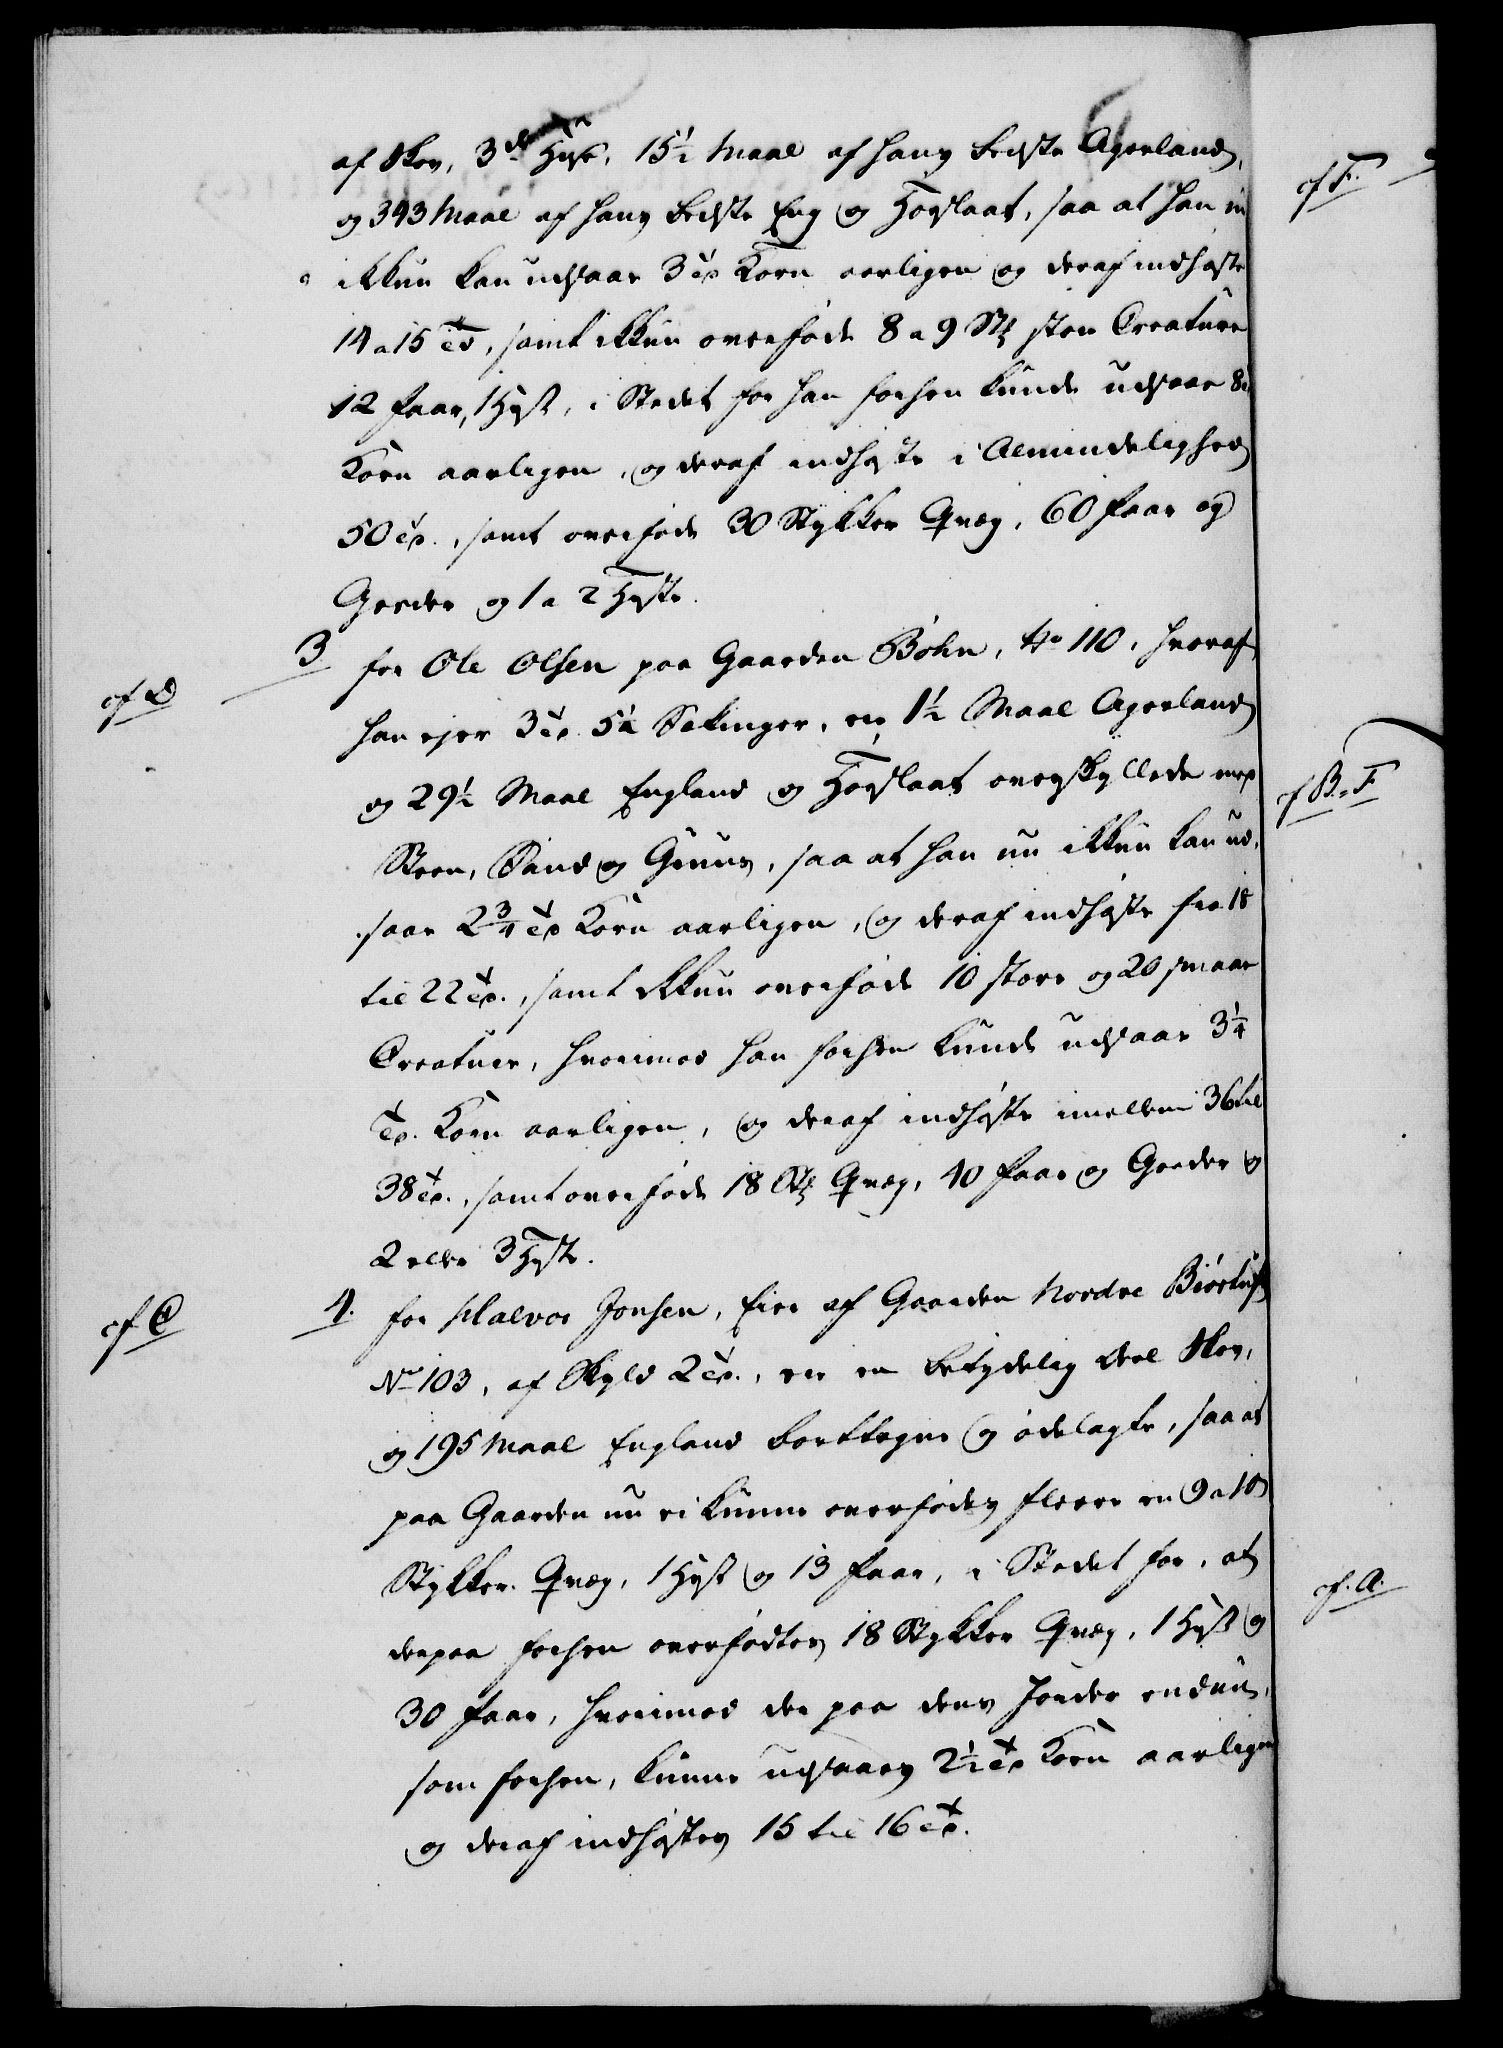 af Skov, 3de Huse, 15½ Maal af hans beste Agerland,
og 343 Maal af hans beste Eng og Høeslaat, saa at han nu
ikkun kan udsaae 3 Tdr Korn aarligen og deraf indhøste
14 a 15 Tdr, samt ikkun overføde 8 a 9 Stk store Creature
12 Faar, 1 Hest, i Stedet for han forhen kunde udsaae 8
Korn aarligen, og deraf indhøste i Almindelighed
50 Tdr., samt overføde 30 Stykker Qvæg, 60 Faar og
Geeder og 1 a 2 Heste.
cf D
3
for Ole Olsen paa Gaarden Bøhn, No 110, hvoraf
han ejer 3 Tdr. 5¼ Setinger, er 1½ Maal Agerland
og 29½ Maal England og Høeslaat overskyllede med
Steen, Sand og Gruus, saa at han nu ikkun kan ud-
saae 2¾ Tdr Korn aarligen, og deraf indhøste fra 18
til 22 Tdr., samt ikkun overføde 10 store og 20 smaae
Creature, hvorimod han forhen kunde udsaae 3¼
Tdr. Korn aarligen, og deraf indhøste imellem 36 til
38 Tdr., samt overføde 18 Stk Qvæg, 40 Faar og Geeder og
2 eller 3 Heste.
cf C
4.
for Halvor Jonsen, Eier af Gaarden Nordre Biørtuft
No 103, af Skyld 2 Tdr., er en betydelig Deel Skov,
og 195 Maal England borttagne og ødelagte, saa at
paa Gaarden nu ei kunne overfødes fleere en 9 a 10
Stykker Qvæg, 1 Hest og 13 Faar, i Stedet for, at
derpaa forhen overfødtes 18 Stykker Qvæg, 1 Hest og
30 Faar, hvorimod der paa dens Jorder endnu,
som forhen, kunne udsaaes 2½ Tdr Korn aarligen
og deraf indhøstes 15 til 16 Tdr.
cf F.
cf B. F
cf. A.